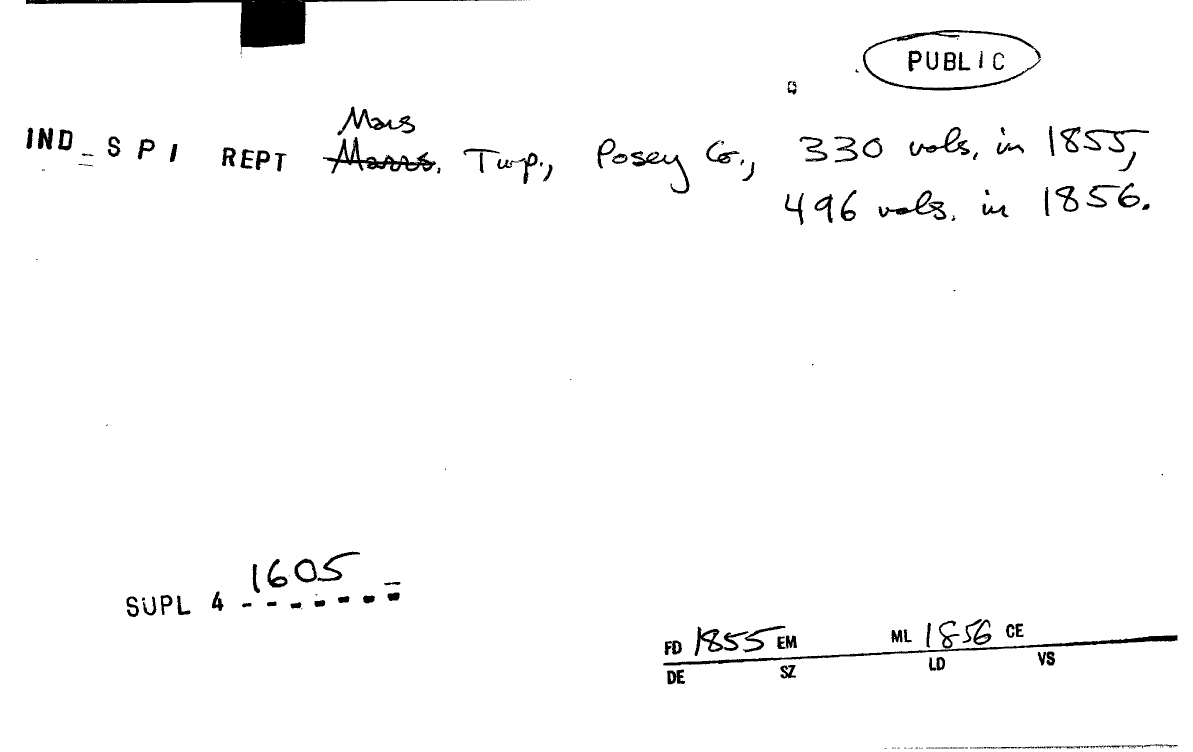 PUBLIC
Mars
IND_SPI REPT Marrs. Twp., Posey Co., 330 vols. in 1855,
496 vols. in 1856.
1605
SUPL 4 -------
FD 1855 EM ML 1856 CE
DE SZ LD VS